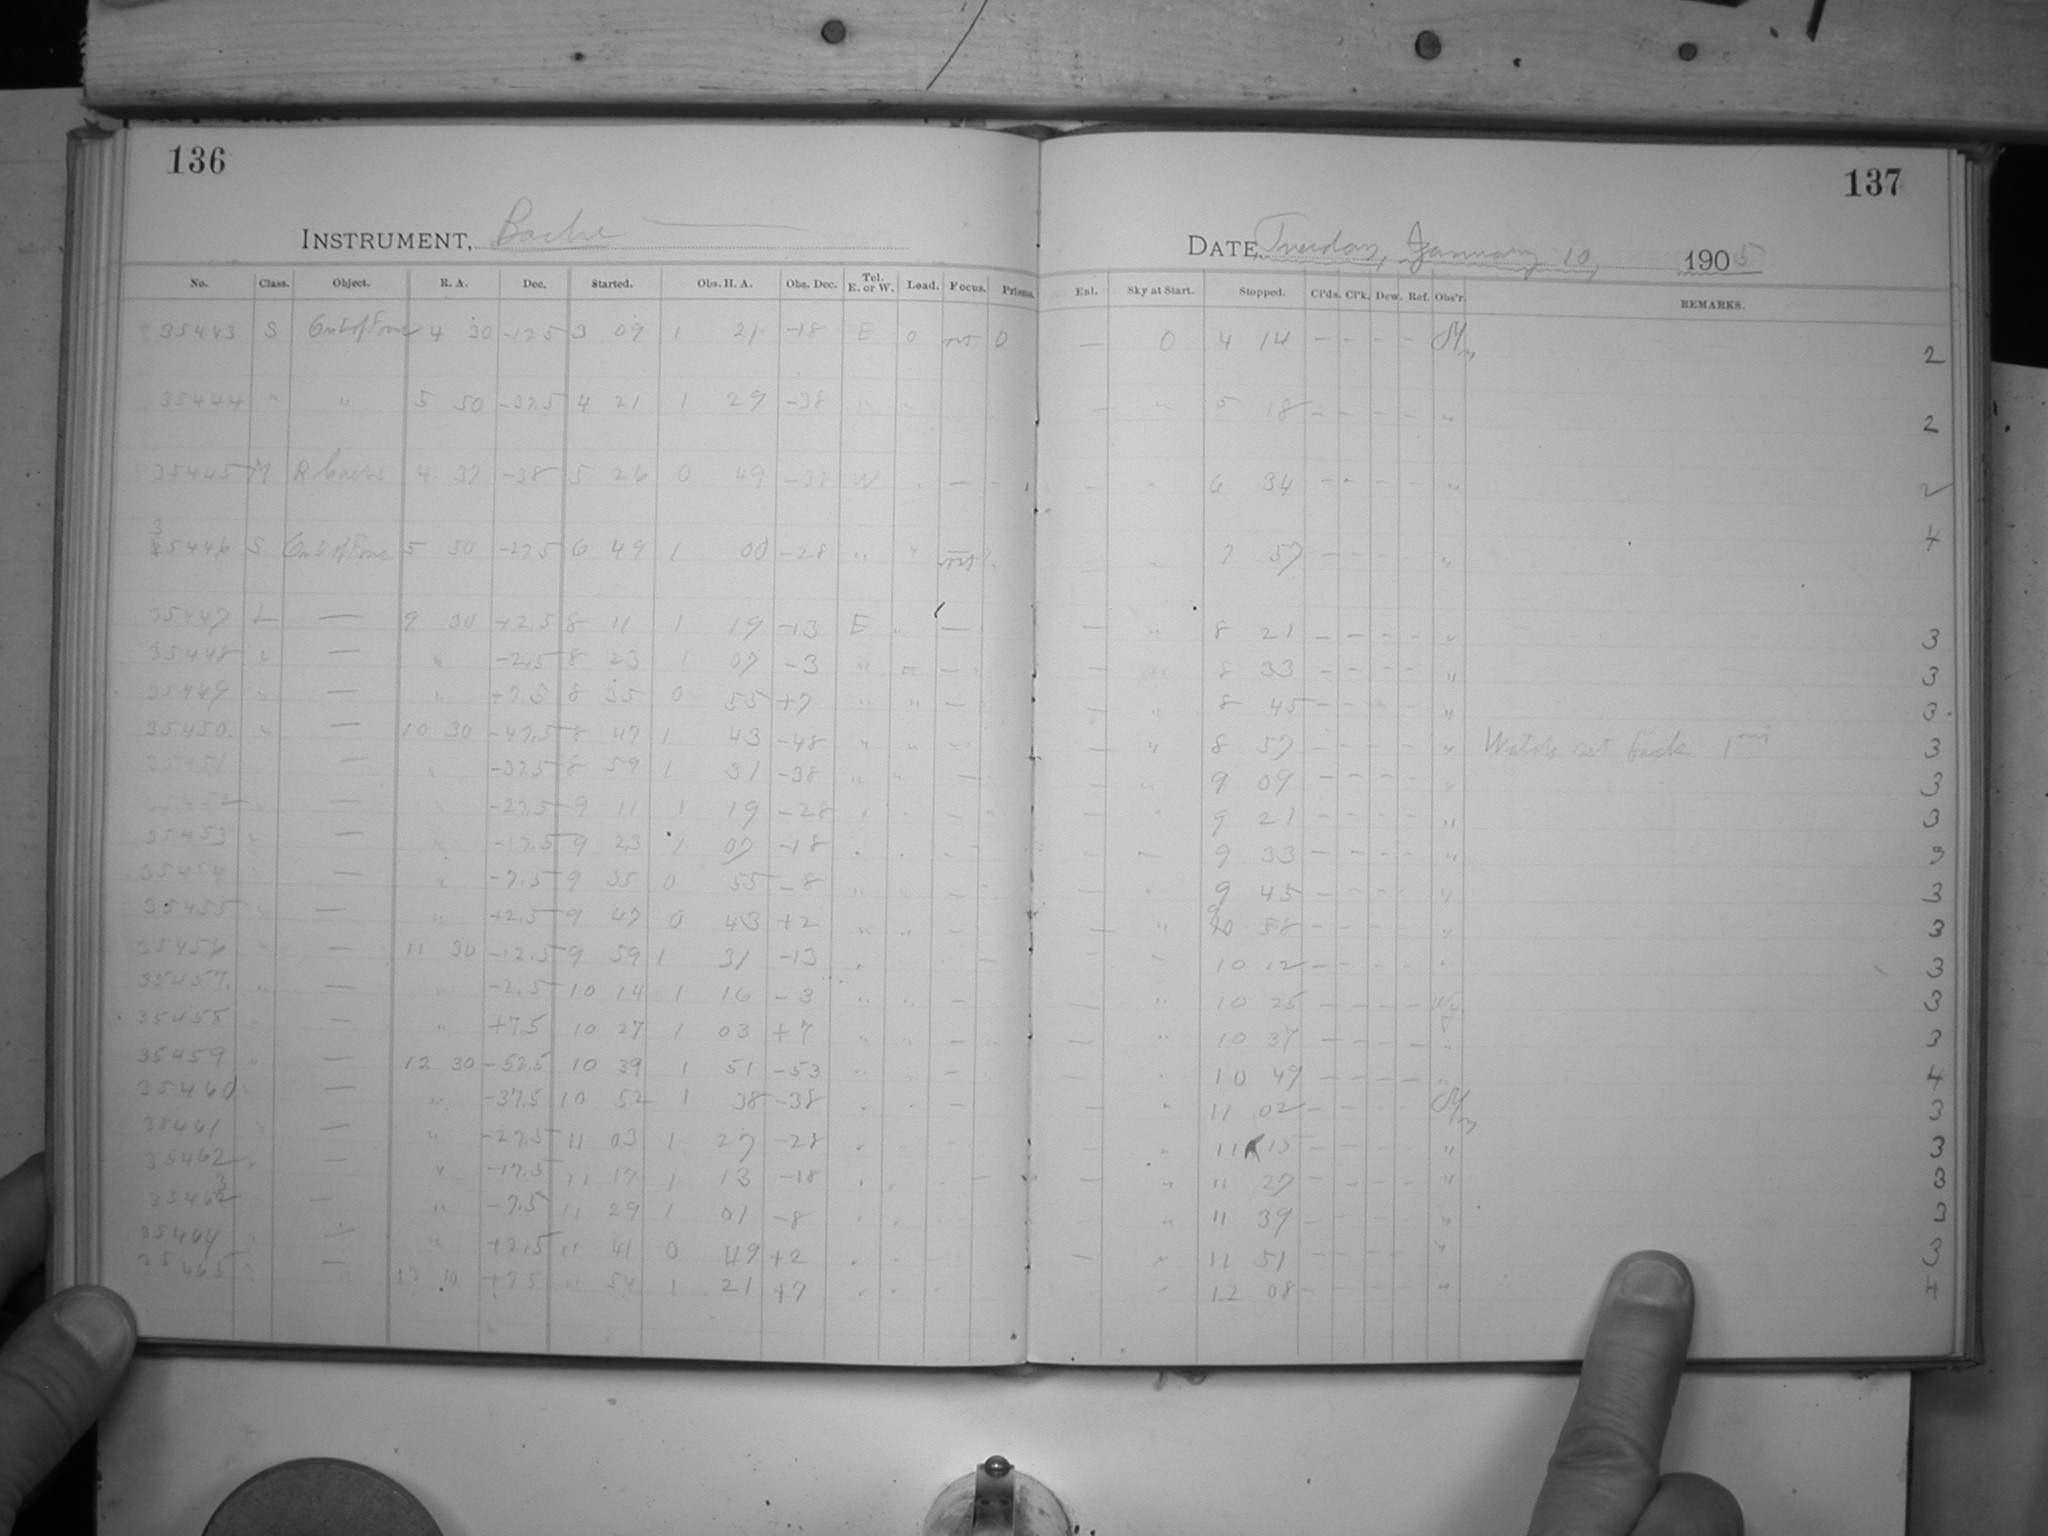 136
INSTRUMENT, Bache
No. Class. Object. R. A. Dec. Started. Obs. H. A. Obs. Dec. Tel. E. or W. Load. Focus. Prisms.
35443 S Out of Focus 4 30 -17.5 3 09 1 21 -18 E 0 0
35444 " " 5 50 -37.5 4 21 1 29 -38 "
35445 M 4 37 -38 5 26 0 49 -37 W —
35446 S Out of Focus 5 50 -27.5 6 49 1 00 -28 " "
35447 L — 9 30 -12.5 8 11 1 19 -13 E " —
35448 " — " -2.5 8 23 1 07 -3 " " —
35449 " — " +7.5 8 35 0 55 +7 " " —
35450 " — 10 30 -47.5 8 47 1 43 -48 " " —
35451 — " -37.5 8 59 1 31 -38 " " —
35452 " — " -27.5 9 11 1 19 -28 " " —
35453 " — " -17.5 9 23 1 07 -18 " " —
35454 " — " -7.5 9 35 0 55 -8 " " —
35455 " — " +2.5 9 47 0 43 +2 " " —
35456 " — 11 30 -12.5 9 59 1 31 -13 "
35457 " — " -2.5 10 14 1 16 -3 " " —
35458 " — " +7.5 10 27 1 03 +7 " " —
35459 " — 12 30 -52.5 10 39 1 51 -53 " " —
35460 " — " -37.5 10 52 1 38 -38 " " —
35461 " — " -27.5 11 03 1 27 -28 "
35462 " — " -17.5 11 17 1 13 -18 " "
35463 " — " -7.5 11 29 1 01 -8 " "
35464 " — " +2.5 11 41 0 49 +2 " "
35465 " — 13 10 +7.5 11 54 1 21 +7 " "
137
DATE, Tuesday, January 10, 1905
Enl. Sky at Start. Stopped. Cl'ds. Cl'k. Dew. Ref. Obs'r. REMARKS.
— 0 4 14 — — — — 2
— " 5 18 — — — — " 2
— " 6 34 — — — — " 2
4
— " 7 57 — — — — "
— " 8 21 — — — — " 3
— " 8 33 — — — — " 3
— " 8 45 — — — — " 3
— " 8 57 — — — — " Watch set back 1 min 3
— " 9 09 — — — — " 3
— " 9 21 — — — — " 3
— " 9 33 — — — — " 3
— " 9 45 — — — — " 3
— " 9 58 — — — — " 3
" 10 12 — — — — " 3
— " 10 25 — — — — 3
— " 10 37 — — — — " 3
— " 10 49 — — — — " 4
— " 11 02 — — — — 3
— " 11 15 — — — — " 3
— " 11 27 — — — — " 3
" 11 39 — — — — " 3
— " 11 51 — — — — " 3
" 12 08 — — — — " 4